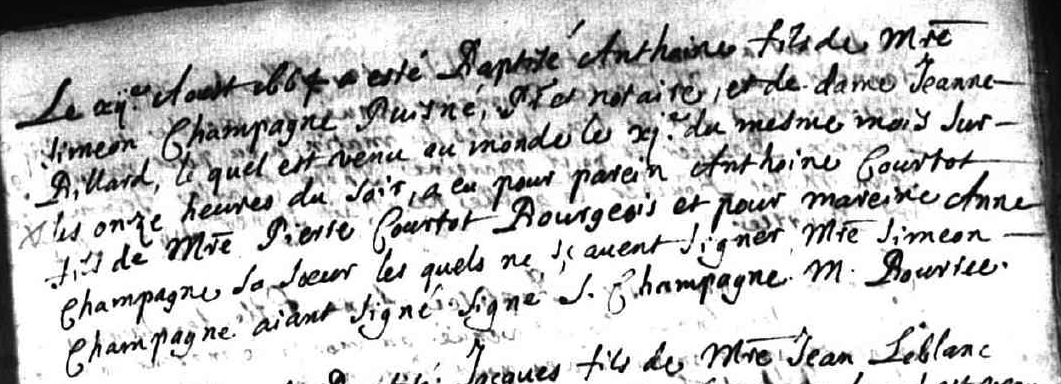 Le xij.e Aoust 1664 a esté Baptisé Anthoine fils de Mre
Simeon Champagne Puisné, Pr et notaire, et de dame Jeanne
Billard, le quel est venu au monde le xj.e du mesme mois sur
les onze heures du soir, a eu pour parein Anthoine Courtot
fils de Mre Pierre Courtot Bourgeois et pour mareine Anne
Champagne sa soeur les quels ne sçauent signer Mre Simeon
Champagne aiant signé signe S. Champagne. M.
Jacques fils de Mre Jean Leblanc